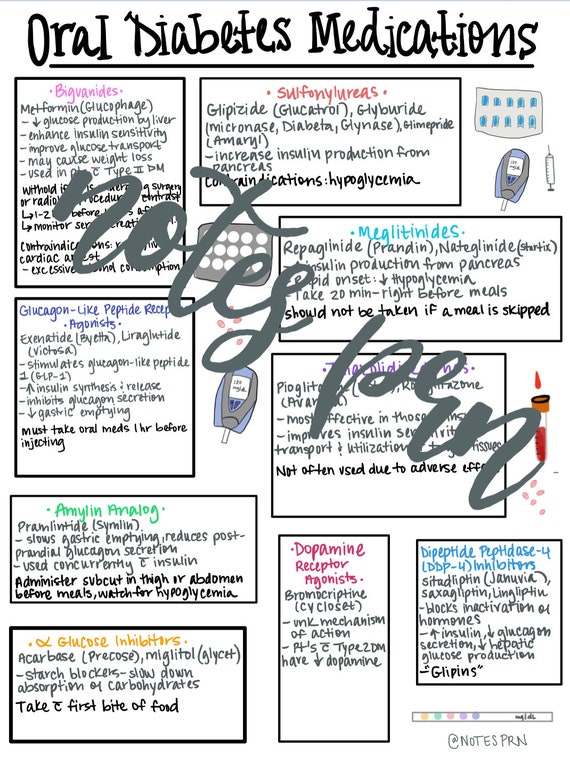 Oral Diabetes Medications
• Biguanides •
Metformin (Glucophage)
- ↓ glucose production by liver
- enhance insulin sensitivity
- improve glucose transport
- may cause weight loss
- used in c̄ Type II DM
withold if surgery
or radio contrast
↳ 1-2 before
↳ monitor
contraindications:
cardiac
- excessive consumption
• Sulfonylureas •
Glipizide (Glucatrol), Glyburide
(micronase, Diabeta, Glynase), Glimepride
(Amaryl)
- increase insulin production from
pancreas
contraindications: hypoglycemia
• Meglitinides •
Repaglinide (Prandin), Nateglinide (Starlix)
insulin production from pancreas
Rapid onset: ↓ hypoglycemia
- Take 20 min-right before meals
should not be taken if a meal is skipped
Glucagon-Like Peptide
• Agonists •
Exenatide (Byetta), Liraglutide
(Victosa)
- stimulates glucagon-like peptide
1 (GLP-1)
- ↑ insulin synthesis & release
- inhibits glucagon secretion
- ↓ gastric emptying
must take oral meds 1 hr before
injecting
- most effective in those
- improves insulin
transport & utilization tissues
Not often used due to adverse
• Amylin Analog •
Pramlintide (Symlin)
- slows gastric emptying, reduces post-
prandial glucagon secretion
- used concurrently c̄ insulin
Administer subcut in thigh or abdomen
before meals, watch for hypoglycemia
• Dopamine
Receptor
Agonists •
Bromocriptine
(Cycloset)
- unk mechanism
of action
- Pt's c̄ Type 2 DM
have ↓ dopamine
Dipeptide Peptidase-4
(DDP-4) Inhibitors
sitagliptin (Januvia),
saxagliptin, Lingliptin
- blocks inactivation of
hormones
- ↑ insulin, ↓ glucagon
secretion, ↓ hepatic
glucose production
- "Glipins"
• α Glucose Inhibitors •
Acarbase (Precose), miglitol (glycet)
- starch blockers- slow down
absorption of carbohydrates
Take c̄ first bite of food
mg/dL
@NOTESPRN
notes prn